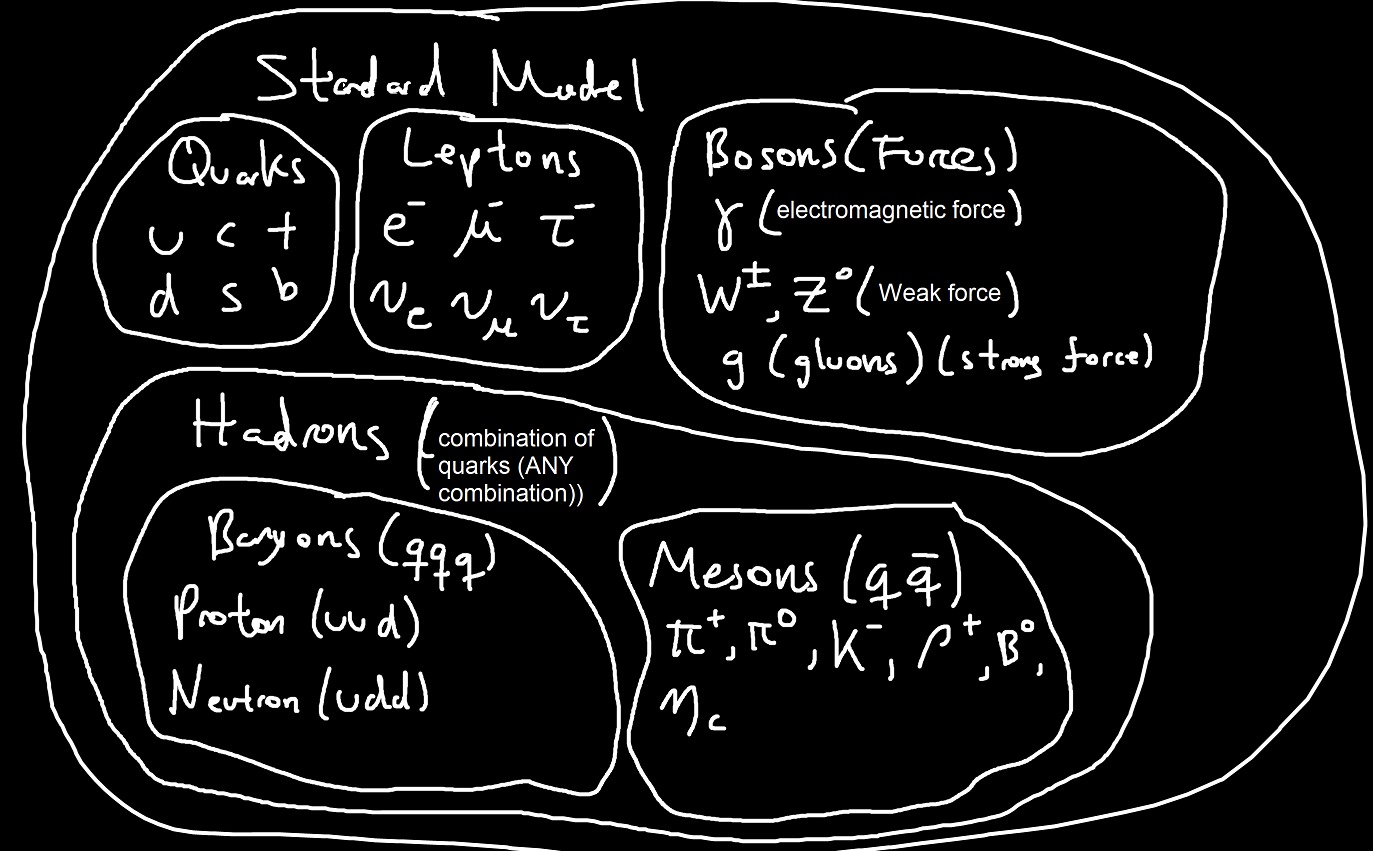 Standard Model
Quarks
u c t
d s b
Leptons
e⁻ μ⁻ τ⁻
ν_e ν_μ ν_τ
Bosons (Forces)
γ (electromagnetic force)
W±, Z⁰ (Weak force)
g (gluons) (strong force)
Hadrons (combination of
quarks (ANY
combination))
Baryons (qqq)
Proton (uud)
Neutron (udd)
Mesons (q q̄)
π⁺, π⁰, K⁻, ρ⁺, B⁰,
η_c